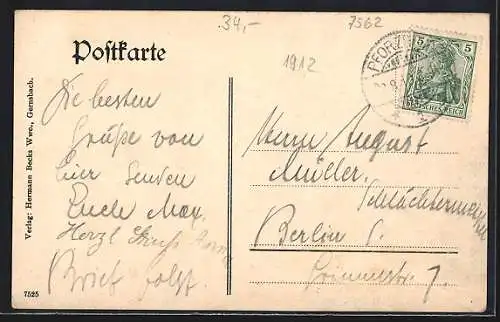 34,-
7562
1912
Postkarte
PFORZ
5 5
DEUTSCHES REICH
Die besten
Grüße von
hier senden
Euch Max.
Herzl. Gruß
Brief folgt.
Herrn August
Müller.
Schlächtermeister
Berlin S.
7.
Verlag: Hermann Becks Wwe., Gernsbach.
7525